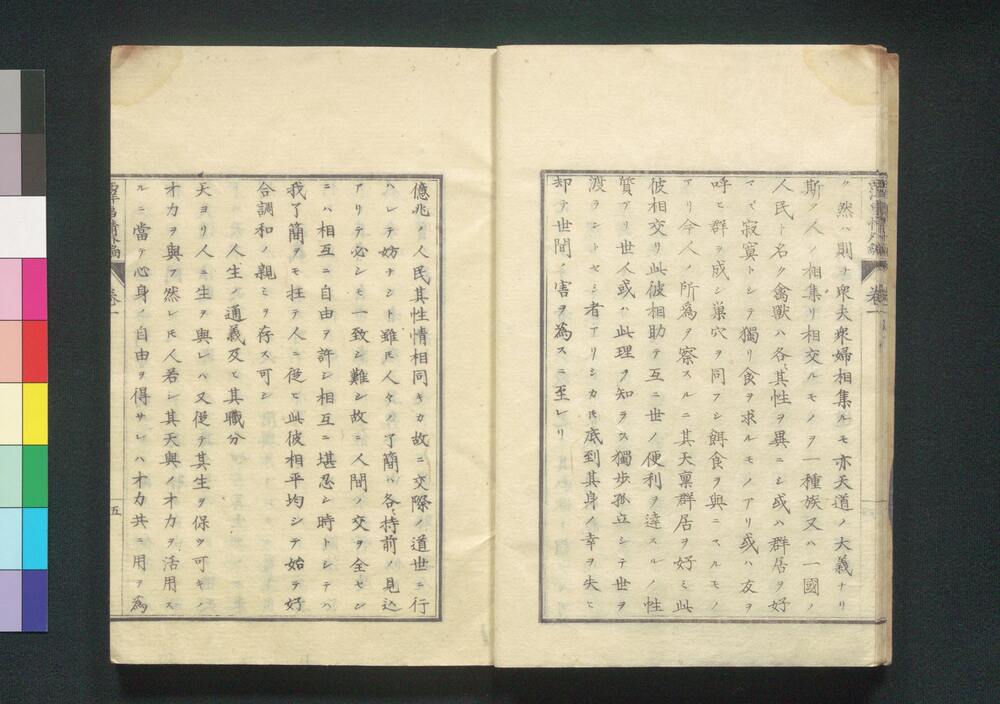 ク然ハ則チ衆夫衆婦相集ルモ亦天道ノ大義ナリ
斯ク人々相集リ相交ルモノヲ一種族又ハ一國ノ
人民ト名ク禽獸ハ各〻其性ヲ異ニシ或ハ群居ヲ好
マズ寂寞トシテ獨リ食ヲ求ルモノアリ或ハ友ヲ
呼ヒ群ヲ成シ巣穴ヲ同フシ餌食ヲ與ニスルモノ
アリ今人ノ所爲ヲ察スルニ其天禀群居ヲ好ミ此
彼相交リ此彼相助テ互ニ世ノ便利ヲ達スルノ性
質アリ世人或ハ此理ヲ知ラス獨歩孤立シテ世ヲ
渡ラントセシ者アリシカ𪜈底到其身ノ幸ヲ失ヒ
却テ世間ノ害ヲ爲スニ至レリ
西洋事情外編
卷一
億兆ノ人民其性情相同キカ故ニ交際ノ道世ニ行
ハレテ妨ナシト雖𪜈人々ノ了簡ハ各〻持前ノ見込
アリテ必シモ一致シ難シ故ニ人間ノ交ヲ全セン
ニハ相互ニ自由ヲ許シ相互ニ堪忍シ時トシテハ
我了簡ヲモ抂テ人ニ從ヒ此彼相平均シテ始テ好
合調和ノ親ミヲ存ス可シ
人生ノ通義及ヒ其職分
天ヨリ人ニ生ヲ與レハ又從テ其生ヲ保ツ可キノ
才力ヲ與フ然レ𪜈人若シ其天與ノ才力ヲ活用ス
ルニ當テ心身ノ自由ヲ得サレハ才力共ニ用ヲ爲
西洋事情外編
卷一
五